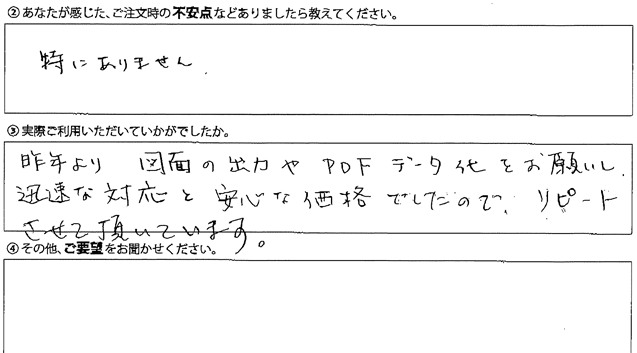 ②あなたが感じた、ご注文時の不安点などありましたら教えてください。
特にありません.
③実際ご利用いただいていかがでしたか。
昨年より 図面の出力や PDF データ化をお願いし.
迅速な対応と安心な価格でしたので、リピート
させて頂いています。
④その他、ご要望をお聞かせください。